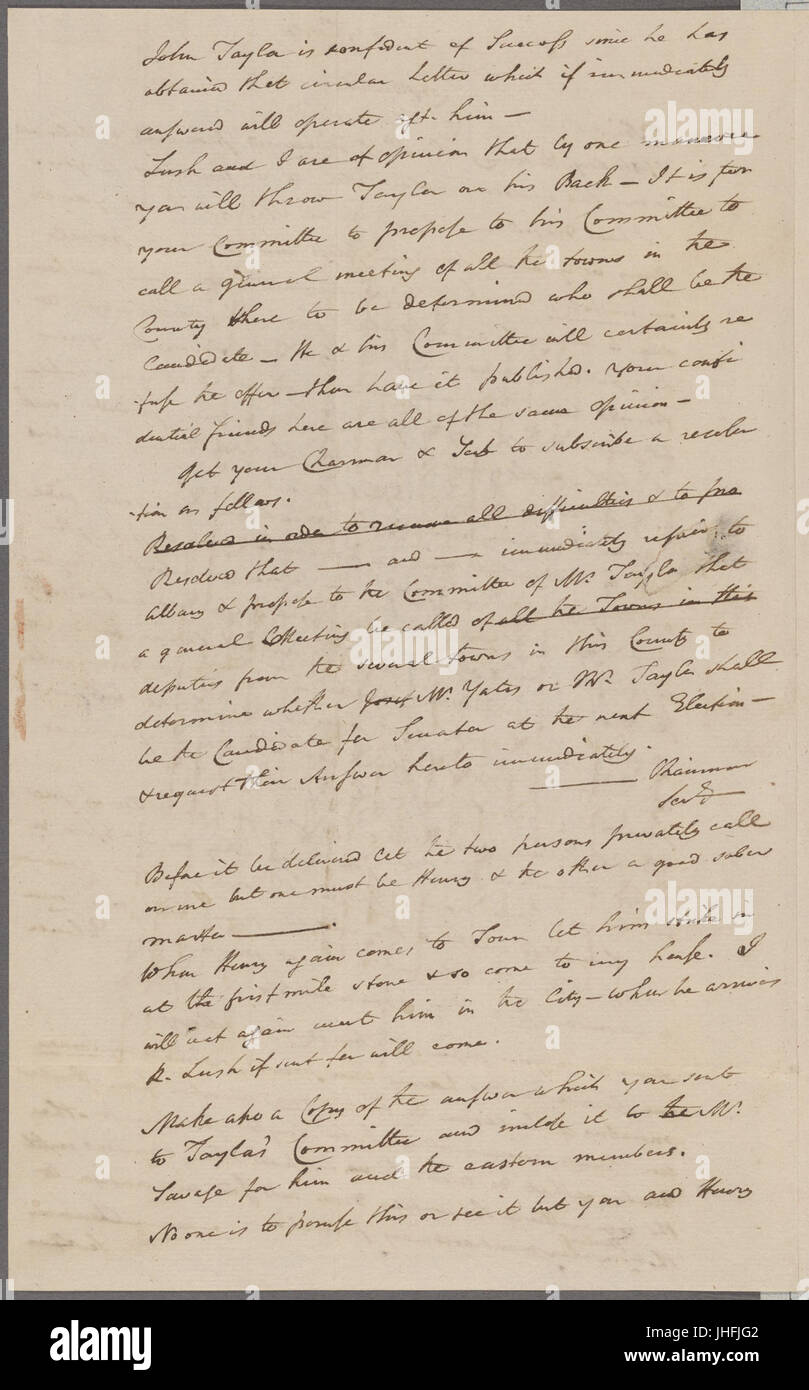 John Tayler is confident of Success since he has
obtained that circular Letter which if immediately
answered will operate agt. him —
Lush and I are of opinion that by one manœuvre
you will throw Tayler on his Back — It is for
your Committee to propose to his Committee to
call a general meeting of all the towns in the
County there to be determined who shall be the
Candidate — He & his Committee will certainly re
fuse the offer — then have it published. your confi
dential friends here are all of the same opinion —
Get your Chairman & Secty to subscribe a resolu
tion as follows.
Resolved in order to remove all difficulties & to pre
Resolved that — and — immediately repair to
albany & propose to the Committee of Mr. Tayler that
a general Meeting be called of all the Towns in this
deputies from the several towns in this County to
determine whether Josep Mr. Yates or Mr. Tayler shall
be the Candidate for Senator at the next Election —
& request their Answer hereto immediately.
Chairman
Secty
Before it be delivered let the two persons privately call
on me but one must be Henry & the other a good sober
master —
When Henry again comes to Town let him strike in
at the first mile stone & so come to my house. I
will not again meet him in the City — when he arrives
R. Lush if sent for will come.
Make also a Copy of the answer which you sent
to Tayler's Committee and inclose it to the Mr.
Savage for him and the eastern members.
No one is to peruse this or see it but you and Henry
alamy
alamy stock photo
JHFJG2
www.alamy.com